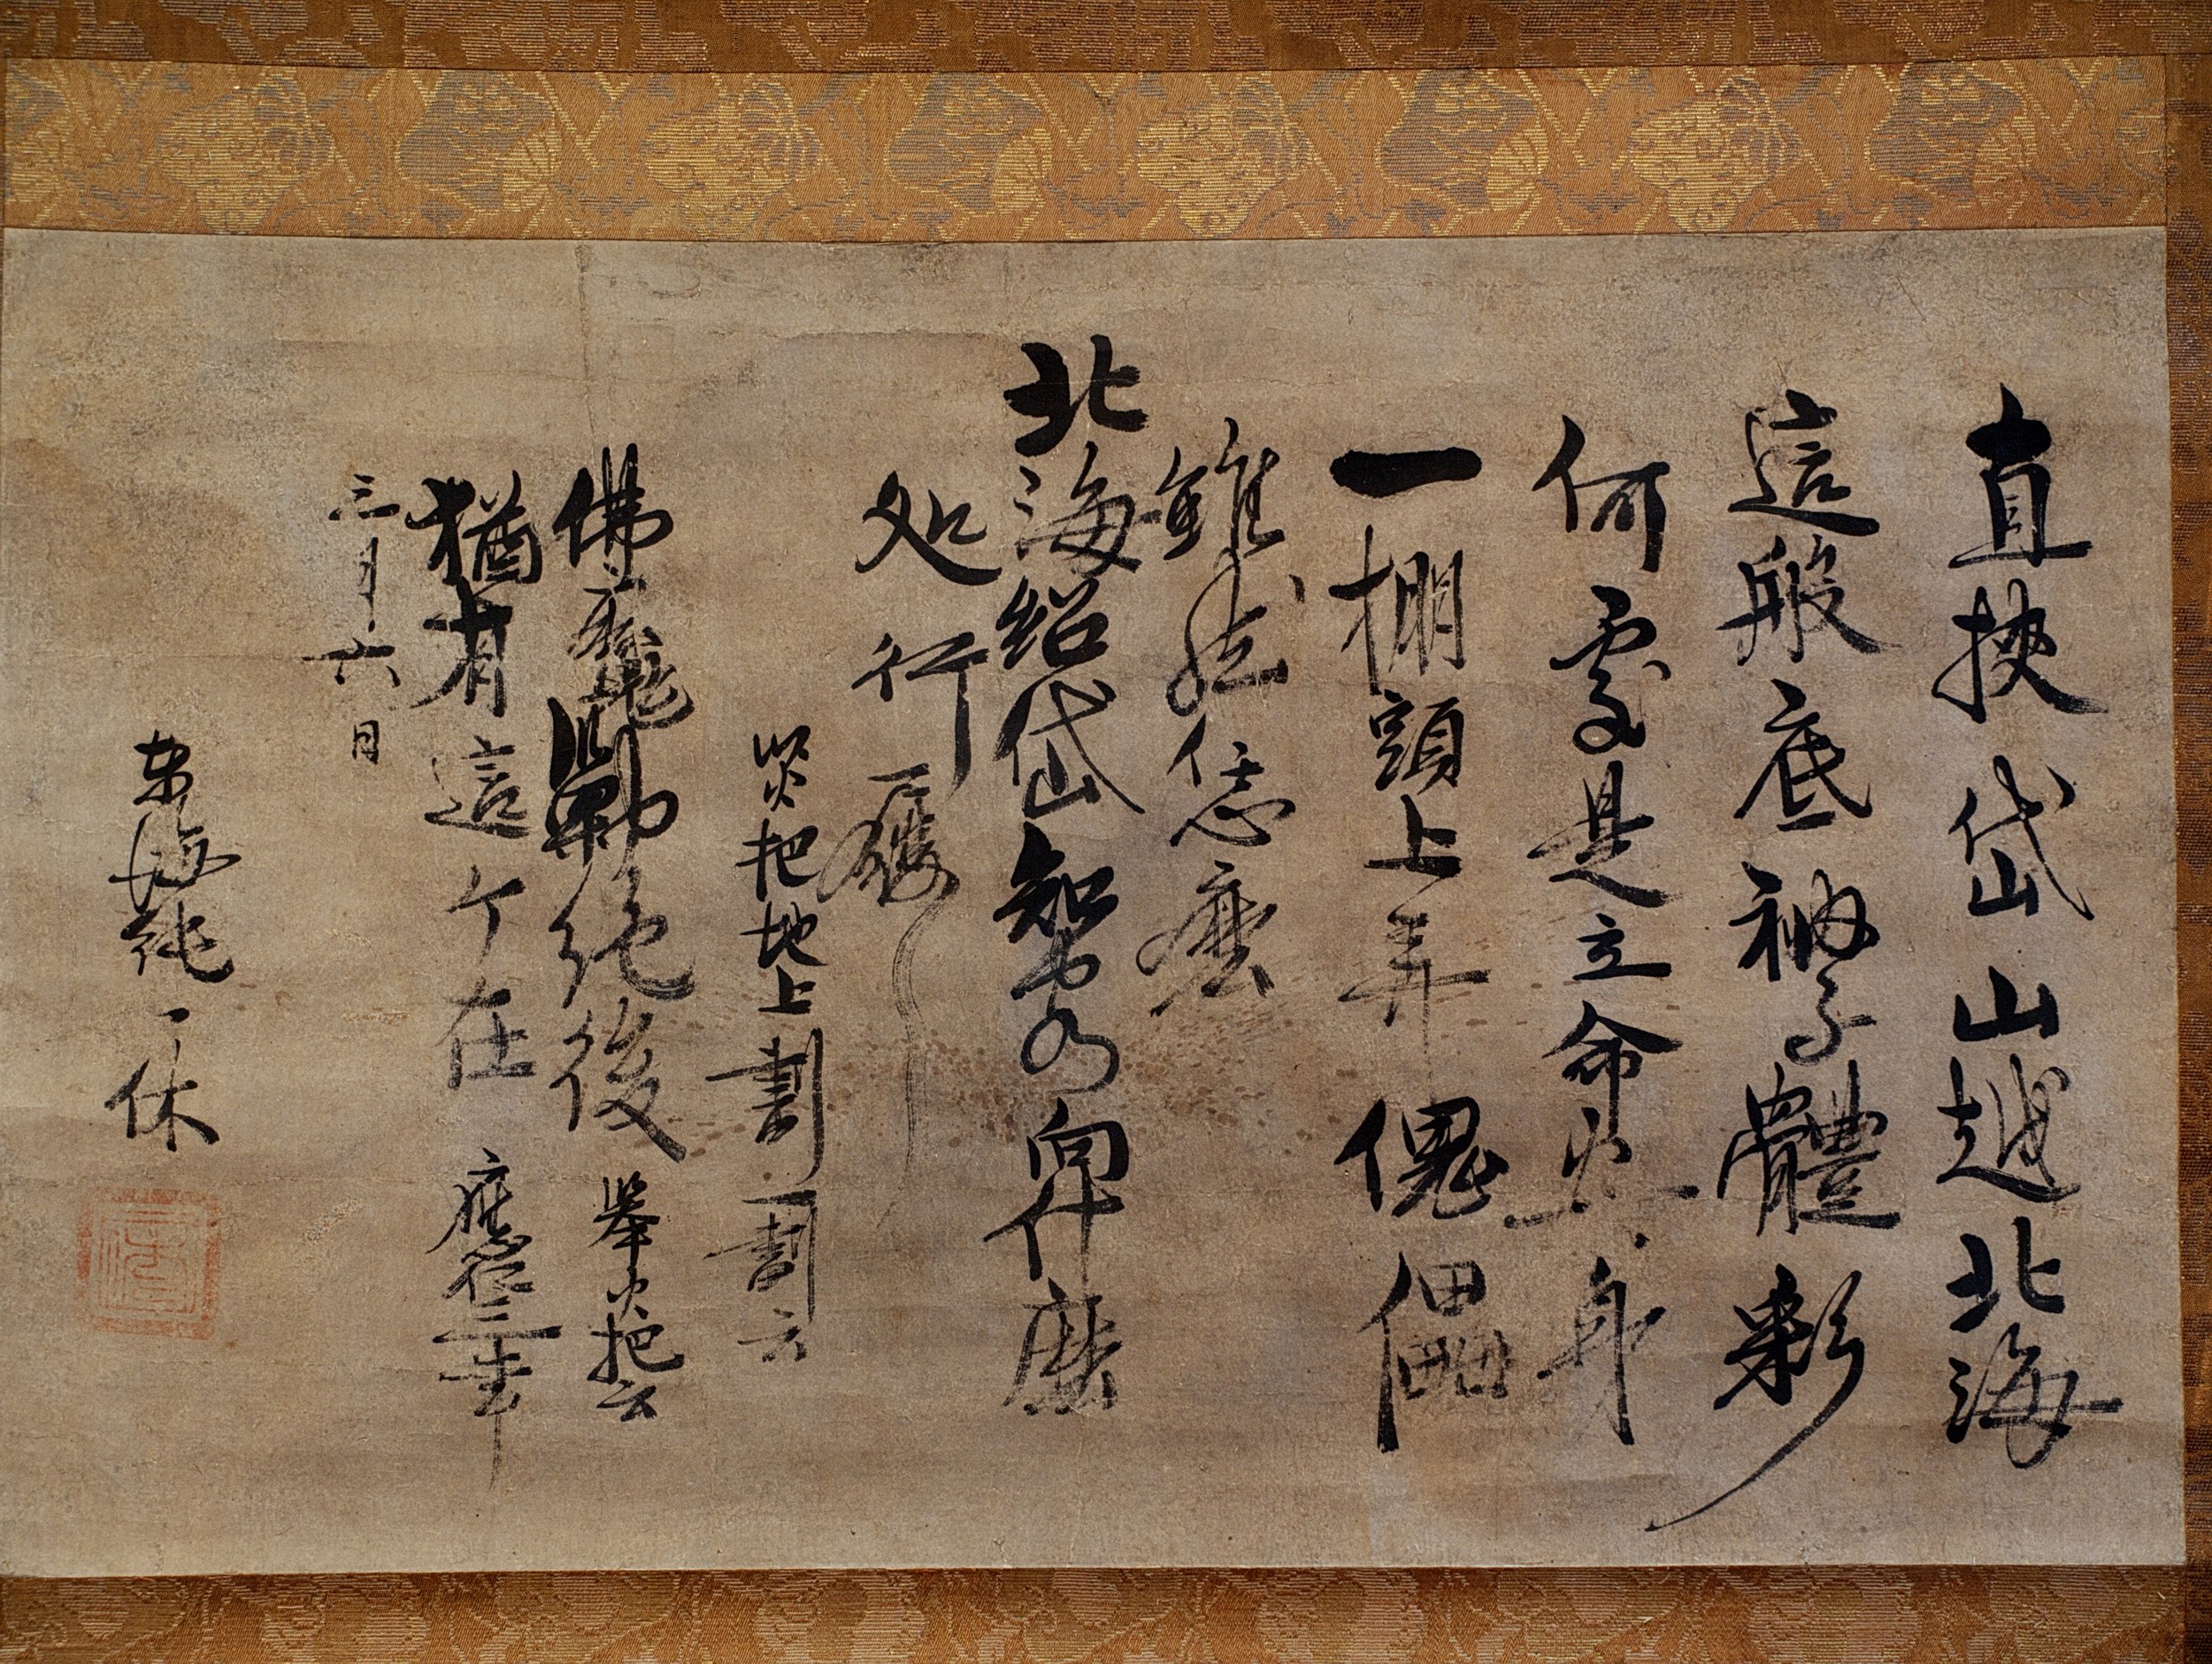 直挟岱山越北海
這般底衲子體彩
何處是立命安身
一棚頭上弄傀儡
雖然恁麼
北海紹岱知客向什麼
処行履
以火把地上劃一劃云
佛魔勦絶後 擧火把云
猶有這个在 應仁三年
三月六日
東海純一休